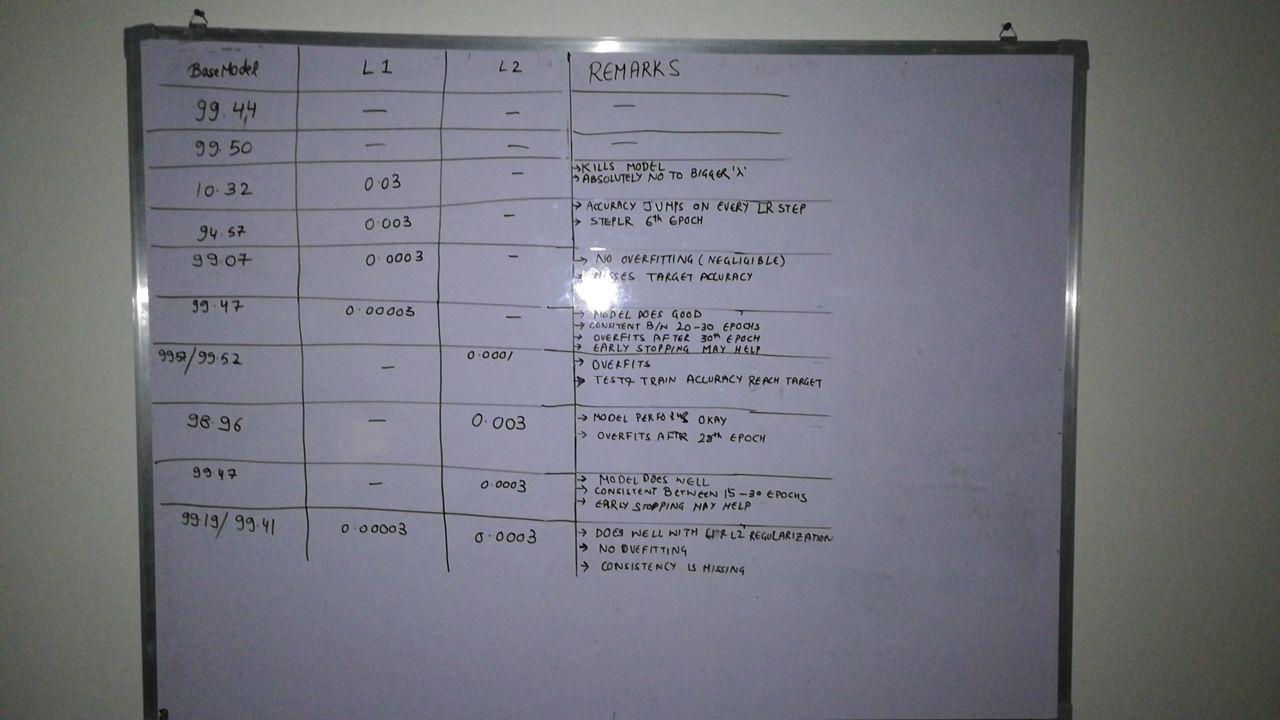 BaseModel L1 L2 REMARKS
99.44 — — —
99.50 — — —
10.32 0.03 — → KILLS MODEL
→ ABSOLUTELY NO TO BIGGER 'λ'
94.57 0.003 — → ACCURACY JUMPS ON EVERY LR STEP
→ STEPLR 6th EPOCH
99.07 0.0003 — → NO OVERFITTING (NEGLIGIBLE)
→ MISSES TARGET ACCURACY
99.47 0.00003 — → MODEL DOES GOOD
→ CONSITENT B/W 20-30 EPOCHS
→ OVERFITS AFTER 30th EPOCH
→ EARLY STOPPING MAY HELP
/99.52 — 0.0001 → OVERFITS
→ TEST & TRAIN ACCURACY REACH TARGET
98.96 — 0.003 → MODEL OKAY
→ OVERFITS AFTR 28th EPOCH
99.47 — 0.0003 → MODEL DOES WELL
→ CONSISTENT BETWEEN 15-30 EPOCHS
→ EARLY STOPPING MAY HELP
99.19/99.41 0.00003 0.0003 → DOES WELL WITH L2 REGULARIZATION
→ NO OVEFITTING
→ CONSISTENCY IS MISSING